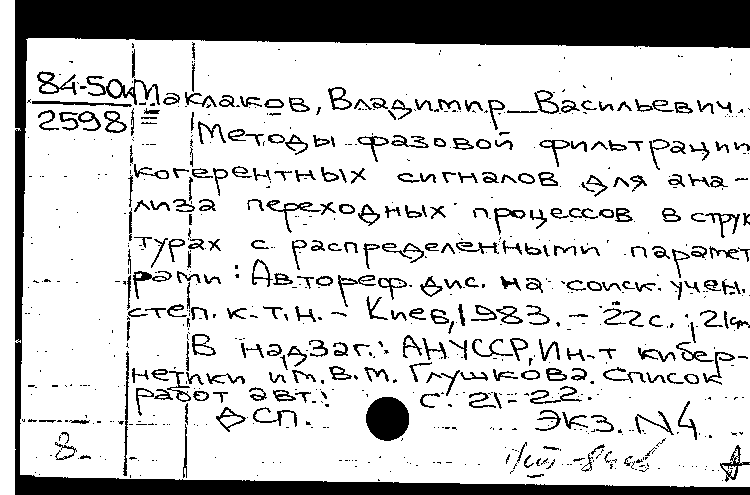 84-50к
2598
Маклаков, Владимир Васильевич.
Методы фазовой фильтрации
когерентных сигналов для ана-
лиза переходных процессов в струк
турах с распределенными парамет
рами: Автореф. дис. на соиск. учен.
степ. к.т.н. – Киев, 1983. – 22с.; 21см
В надзаг.: АНУССР, Ин-т кибер-
нетики им. В.М. Глушкова. Список
работ авт.: с. 21-22.
ДСП. ЭКЗ. N4.
8.